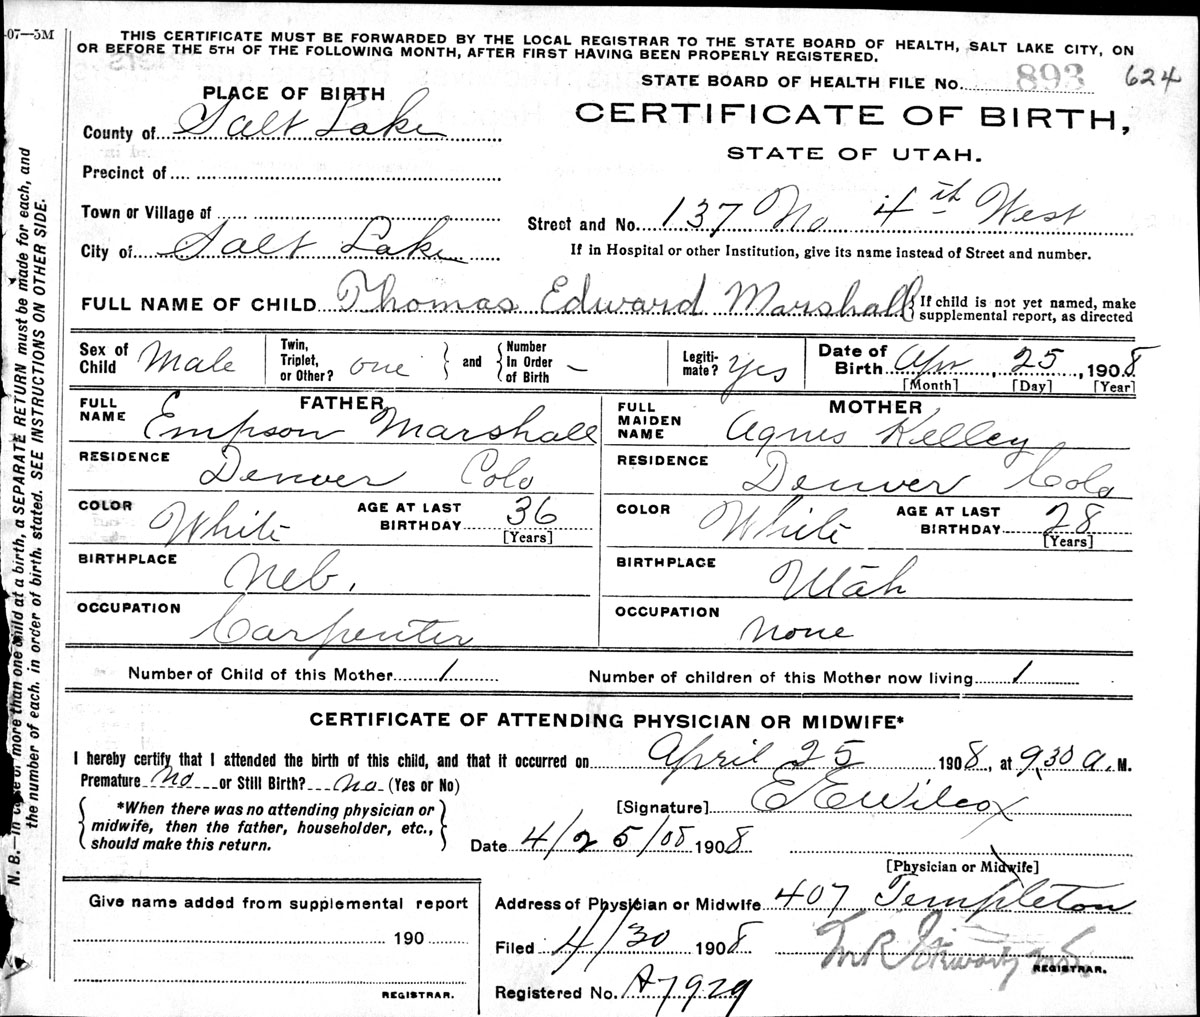 -07—5M
THIS CERTIFICATE MUST BE FORWARDED BY THE LOCAL REGISTRAR TO THE STATE BOARD OF HEALTH, SALT LAKE CITY, ON
OR BEFORE THE 5TH OF THE FOLLOWING MONTH, AFTER FIRST HAVING BEEN PROPERLY REGISTERED.
STATE BOARD OF HEALTH FILE No. 893 624
PLACE OF BIRTH
CERTIFICATE OF BIRTH,
STATE OF UTAH.
County of Salt Lake
Precinct of
Town or Village of
Street and No. 137 No 4th West
City of Salt Lake
If in Hospital or other Institution, give its name instead of Street and number.
FULL NAME OF CHILD Thomas Edward Marshall { If child is not yet named, make
supplemental report, as directed
Sex of Child Male
Twin, Triplet, or Other? one } and { Number In Order of Birth –
Legiti-mate? Yes
Date of Birth Apr, 25, 1908
[Month] [Day] [Year]
FATHER
FULL NAME Empson Marshall
MOTHER
FULL MAIDEN NAME Agnes Kelley
RESIDENCE Denver Colo
RESIDENCE Denver Colo
COLOR White AGE AT LAST BIRTHDAY 36 [Years]
COLOR White AGE AT LAST BIRTHDAY 28 [Years]
BIRTHPLACE Neb.
BIRTHPLACE Utah
OCCUPATION Carpenter
OCCUPATION none
Number of Child of this Mother 1 Number of children of this Mother now living 1
CERTIFICATE OF ATTENDING PHYSICIAN OR MIDWIFE*
I hereby certify that I attended the birth of this child, and that it occurred on April 25 1908, at 9.30 a. M.
Premature No or Still Birth? No (Yes or No)
{ *When there was no attending physician or
midwife, then the father, householder, etc.,
should make this return. }
[Signature] E E Wilcox
Date 4/25/08 1908
[Physician or Midwife]
Give name added from supplemental report
190
REGISTRAR.
Address of Physician or Midwife 407 Templeton
Filed 4/30 1908
REGISTRAR.
Registered No. A7929
N. B.—In case of more than one child at a birth, a SEPARATE RETURN must be made for each, and
the number of each, in order of birth, stated. SEE INSTRUCTIONS ON OTHER SIDE.